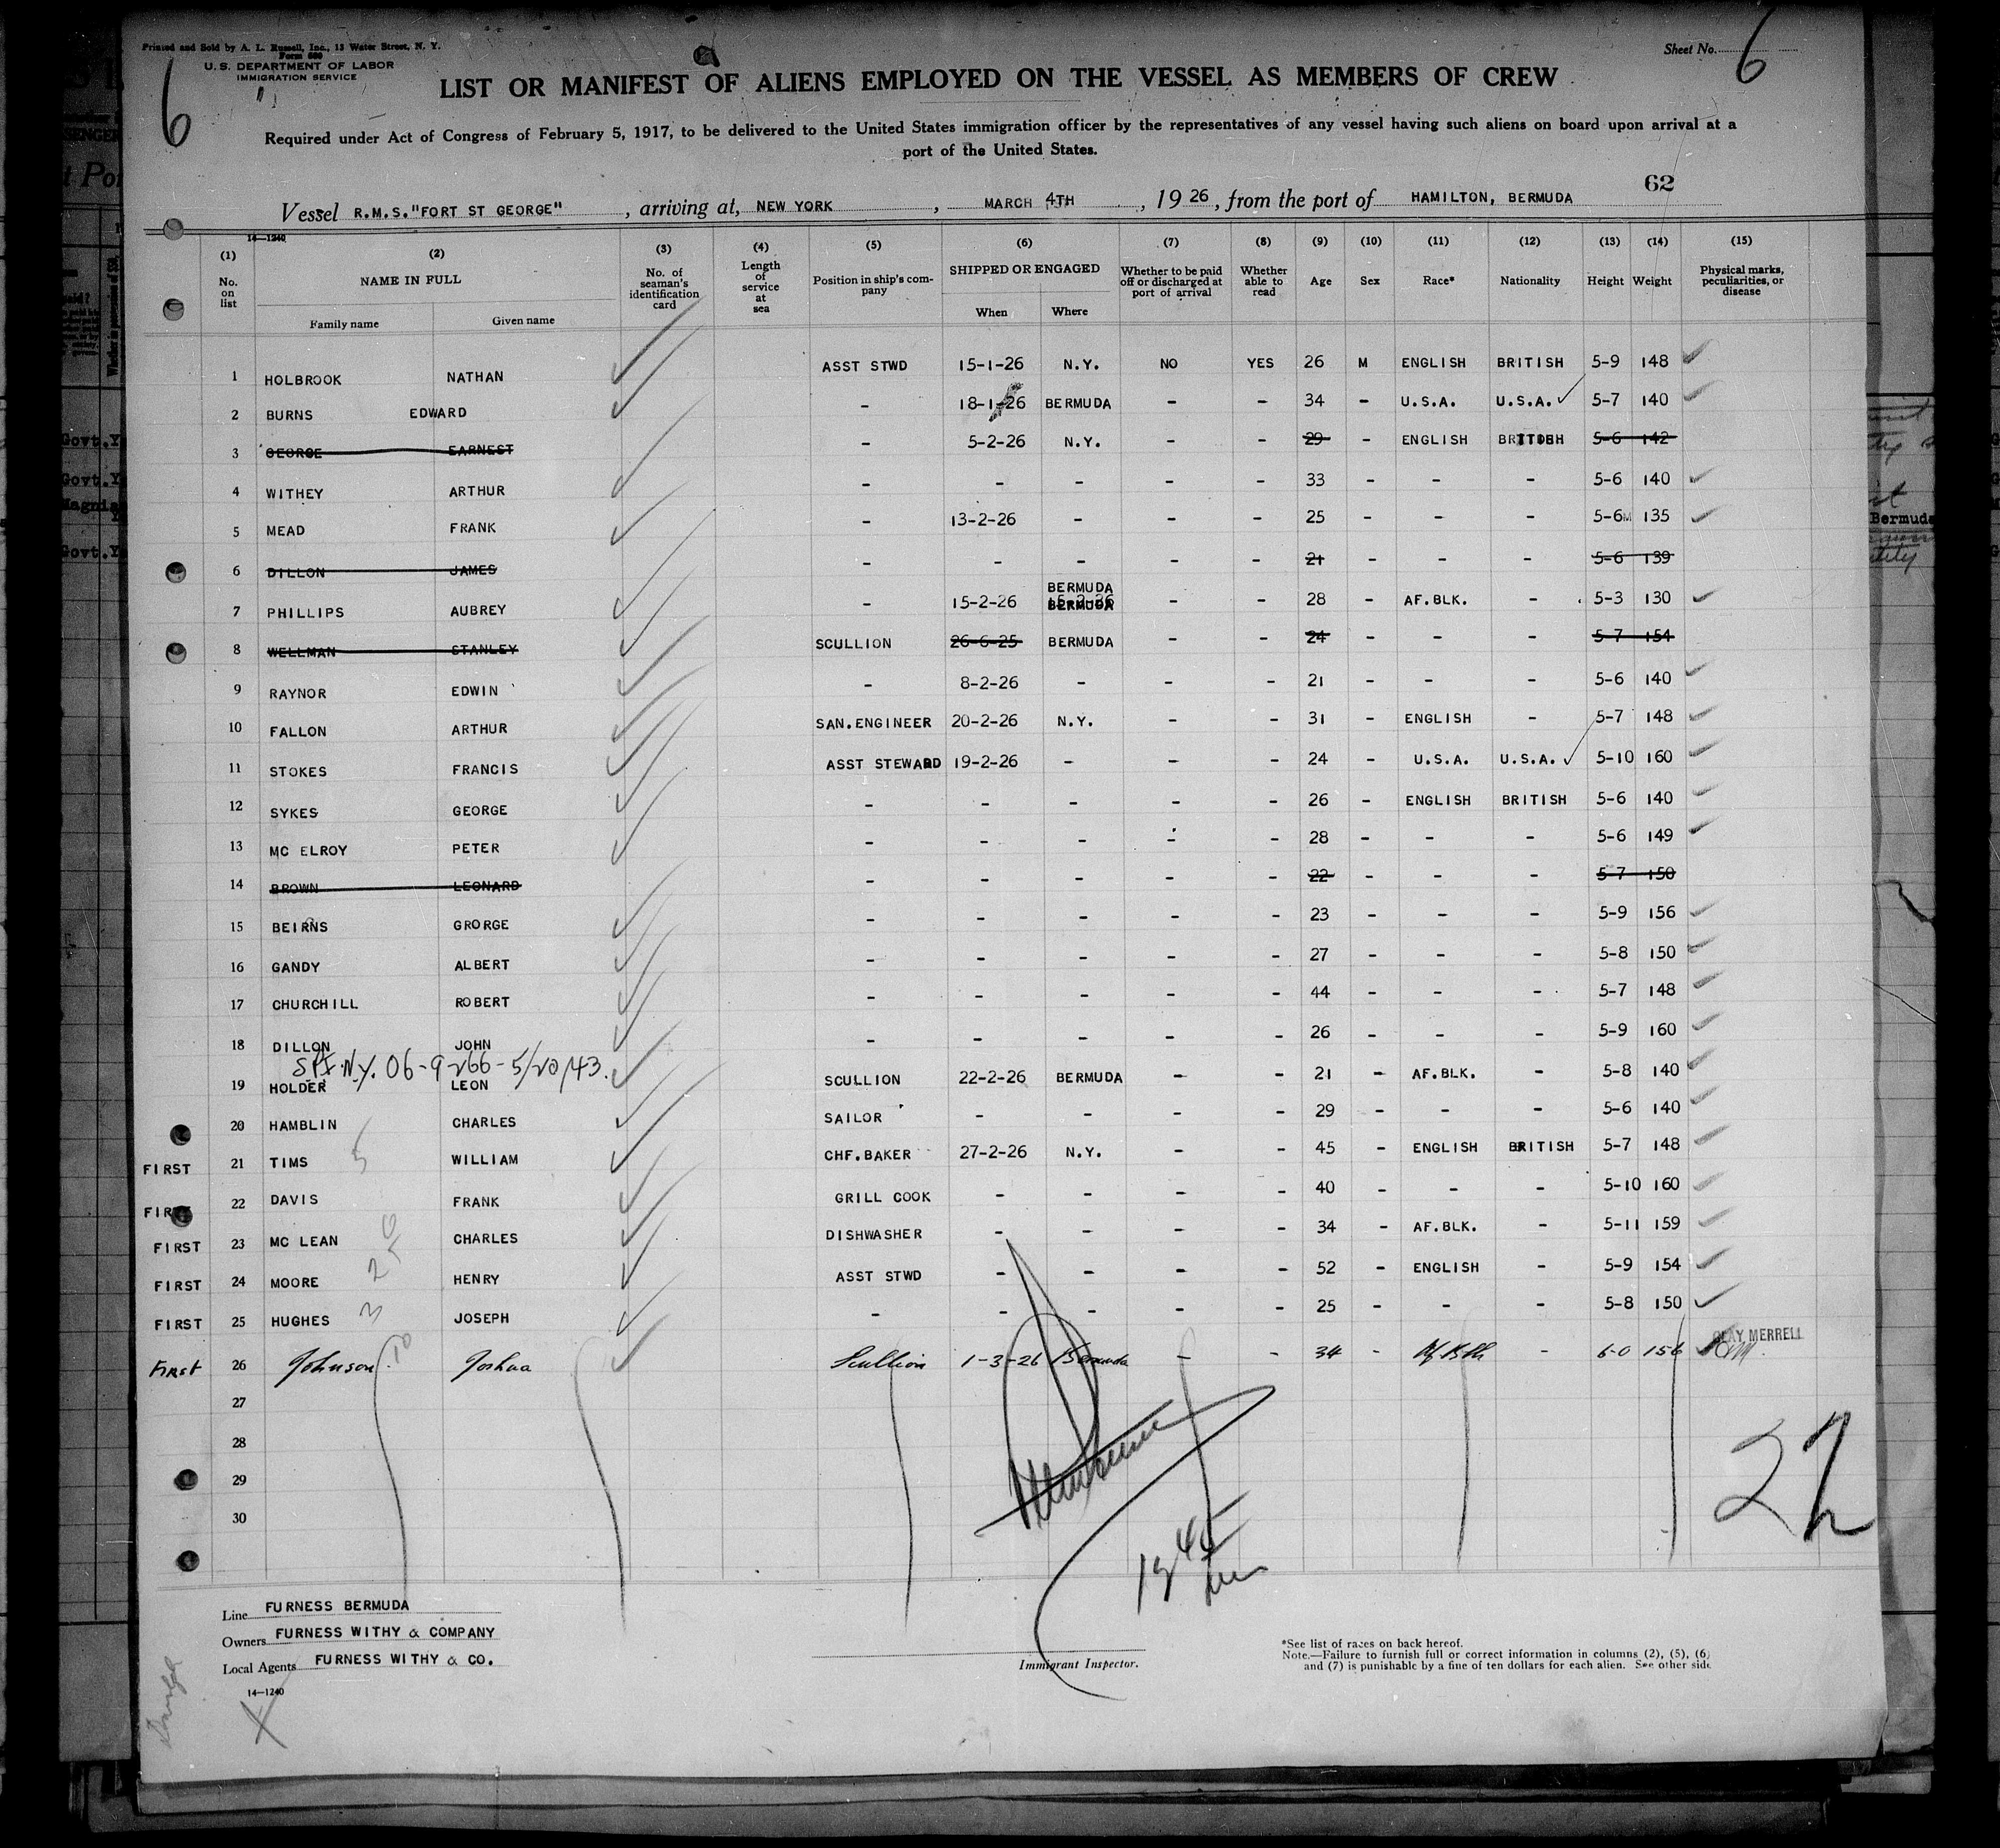 Printed and Sold by A. L. Russell, Inc., 13 Water Street, N. Y.
Form 680
U. S. DEPARTMENT OF LABOR
IMMIGRATION SERVICE
6
Sheet No. 6
LIST OR MANIFEST OF ALIENS EMPLOYED ON THE VESSEL AS MEMBERS OF CREW
Required under Act of Congress of February 5, 1917, to be delivered to the United States immigration officer by the representatives of any vessel having such aliens on board upon arrival at a
port of the United States.
62
Vessel R.M.S."FORT ST GEORGE", arriving at, NEW YORK, MARCH 4TH, 1926, from the port of HAMILTON, BERMUDA
14—1240
(1) (2) (3) (4) (5) (6) (7) (8) (9) (10) (11) (12) (13) (14) (15)
No. on list NAME IN FULL Family name Given name No. of seaman's identification card Length of service at sea Position in ship's company SHIPPED OR ENGAGED When Where Whether to be paid off or discharged at port of arrival Whether able to read Age Sex Race* Nationality Height Weight Physical marks, peculiarities, or disease
1 HOLBROOK NATHAN ASST STWD 15-1-26 N.Y. NO YES 26 M ENGLISH BRITISH 5-9 148
2 BURNS EDWARD - 18-1-26 BERMUDA - - 34 - U.S.A. U.S.A. 5-7 140
3 GEORGE EARNEST - 5-2-26 N.Y. - - 29 - ENGLISH BRITISH 5-6 142
4 WITHEY ARTHUR - - - - - 33 - - - 5-6 140
5 MEAD FRANK - 13-2-26 - - - 25 - - - 5-6 135
6 DILLON JAMES - - - - - 21 - - - 5-6 139
7 PHILLIPS AUBREY - 15-2-26 BERMUDA BERMUDA - - 28 - AF.BLK. - 5-3 130
8 WELLMAN STANLEY SCULLION 26-6-25 BERMUDA - - 24 - - - 5-7 154
9 RAYNOR EDWIN - 8-2-26 - - - 21 - - - 5-6 140
10 FALLON ARTHUR SAN.ENGINEER 20-2-26 N.Y. - - 31 - ENGLISH - 5-7 148
11 STOKES FRANCIS ASST STEWARD 19-2-26 - - - 24 - U.S.A. U.S.A. 5-10 160
12 SYKES GEORGE - - - - - 26 - ENGLISH BRITISH 5-6 140
13 MC ELROY PETER - - - - - 28 - - - 5-6 149
14 BROWN LEONARD - - - - - 22 - - - 5-7 150
15 BEIRNS GRORGE - - - - - 23 - - - 5-9 156
16 GANDY ALBERT - - - - - 27 - - - 5-8 150
17 CHURCHILL ROBERT - - - - - 44 - - - 5-7 148
18 DILLON JOHN - - - - - 26 - - - 5-9 160
N.Y. 06-9-266-5/20/43.
19 HOLDER LEON SCULLION 22-2-26 BERMUDA - - 21 - AF.BLK. - 5-8 140
20 HAMBLIN CHARLES SAILOR - - - - 29 - - - 5-6 140
FIRST 21 TIMS 5 WILLIAM CHF.BAKER 27-2-26 N.Y. - - 45 - ENGLISH BRITISH 5-7 148
FIRST 22 DAVIS FRANK GRILL COOK - - - - 40 - - - 5-10 160
FIRST 23 MC LEAN CHARLES DISHWASHER - - - - 34 - AF.BLK. - 5-11 159
FIRST 24 MOORE 2 HENRY ASST STWD - - - - 52 - ENGLISH - 5-9 154
FIRST 25 HUGHES 3 JOSEPH - - - - - 25 - - - 5-8 150
CLAY MERRELL
First 26 Johnson 10 Joshua Scullion 1-3-26 Bermuda - - 34 - Af Blk - 6-0 156
27
28
29
30
22
Line FURNESS BERMUDA
Owners FURNESS WITHY & COMPANY
Local Agents FURNESS WITHY & CO.
14—1240
Immigrant Inspector.
*See list of races on back hereof.
Note.—Failure to furnish full or correct information in columns (2), (5), (6)
and (7) is punishable by a fine of ten dollars for each alien. See other side.
Govt.
Govt.
Govt.
Bermuda